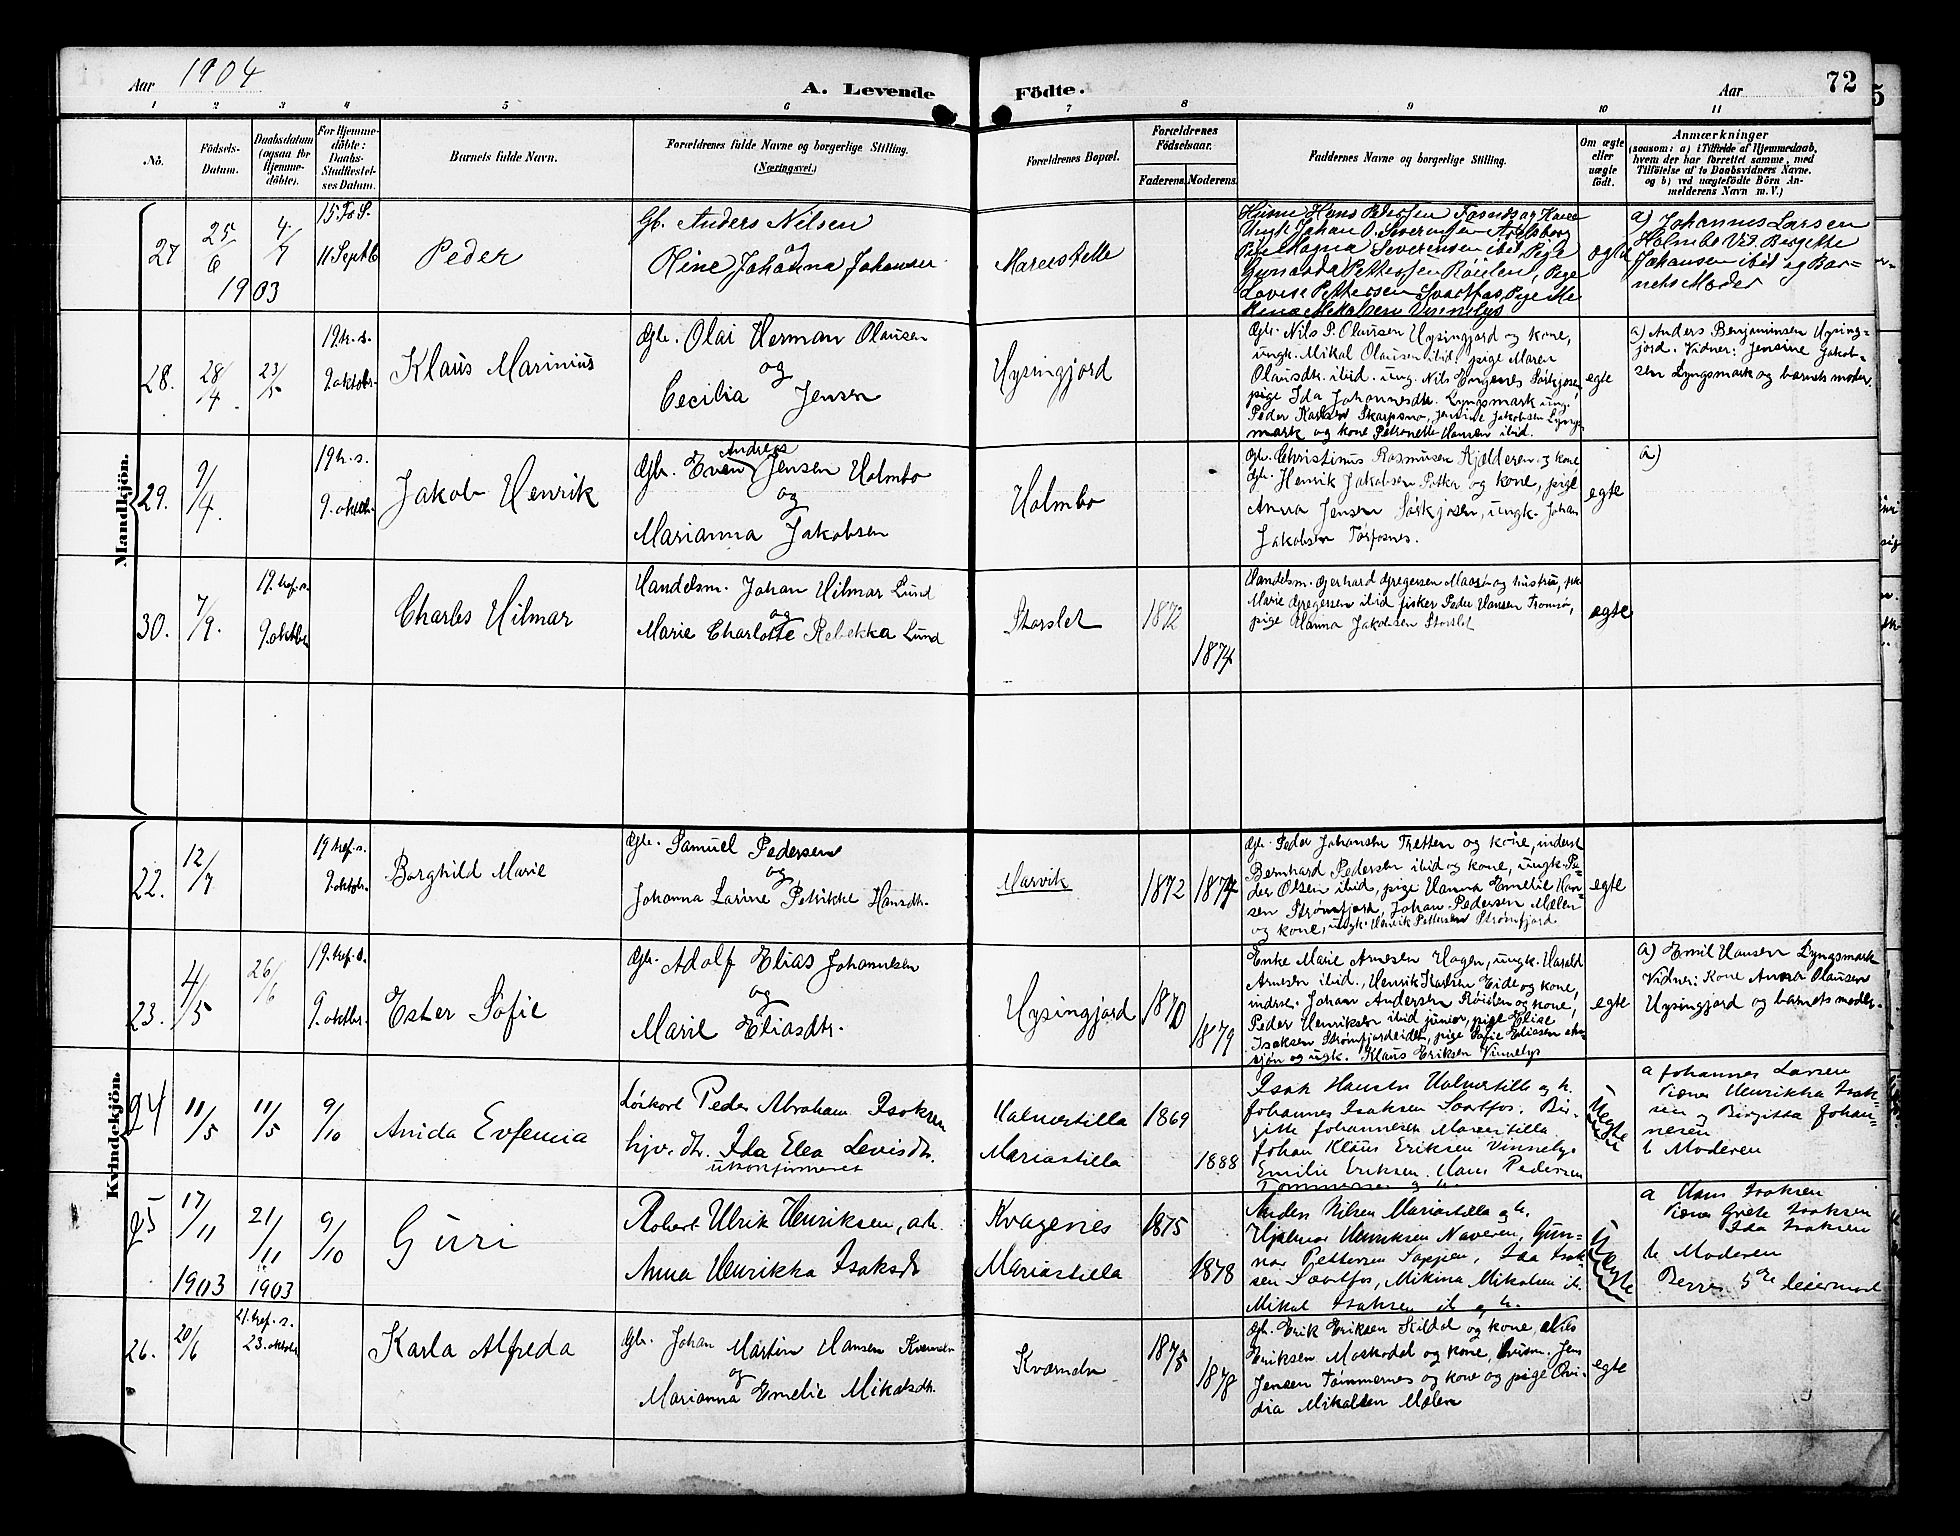 Aar 1904
A. Levende Fødte.
Aar
72
1 2 3 4 5 6 7 8 9 10 11
No.
Födsels-
Datum.
Daabsdatum
(ogsaa for
Hjemme-
döbte).
For Hjemme-
döbte:
Daabs-
Stadfæstel-
ses Datum.
Barnets fulde Navn.
Forældrenes fulde Navne og borgerlige Stilling.
(Næringsvei.)
Forældrenes Bopæl.
Forældrenes
Födselsaar.
Faderens. Moderens.
Faddernes Navne og borgerlige Stilling.
Om ægte
eller
uægte
født.
Anmærkninger
(saasom: a) i Tilfælde af Hjemmedaab,
hvem der har forrettet samme, med
Tilföielse af to Daabsvidners Navne.
og b) ved uægtefödte Börn An-
melderens Navn m. V.)
Mandkjön.
27
25/6
4/7
1903
11 Septb
Peder
Gb. Anders Nilsen
og
Oline Johanna Johanser
Mareestelle
Pige Magna Severinsen ibid Pige
Lovise Pettersen Svartfos, Pige Me
a) Johannes Larsen
Holmbo Vit. Bergitte
Johansen ibid og Bar-
nets Moder
28.
28/4
23/5
19. h. s.
9 oktobr
Klaus Marinius
Gbr. Olai Herman Olausen
og
Cecilia Jensen
Hysingjord
Gbr. Nils P. Olausen Hysingjord og kone,
ungk. Mikal Olausen ibid, pige Maren
Olausdtr. ibid. ung. Nils Engenes Sørkjosen,
pige Ida Johannesdtr. Lyngsmark ung.
Peder Karlsen Skarpsno, Jensine Jakobsen Lyngs-
mark og kone Petronette Hansen ibid.
egte
a) Anders Benjaminsen Hysing-
jord. Vidner: Jensine Jakob-
sen Lyngsmark og barnets moder.
29.
9/4.
19 h. s.
9. oktbr.
Jakob Henrik
Andreas
Gbr. Even Jensen Holmbo
og
Marianna Jakobsen
Holmbo
Gbr. Christinus Rasmusen Kjelderen og kone
Gbr. Henrik Jakobsen Potka og kone, pige
Anna Jensen Sørkjosen, ungk. Johan
Jakobsen Tørfosnes.
egte
a)
30.
7/9.
19. tref. s.
9. oktbr
Charles Hilmar
Handelsm. Johan Hilmar Lund
og
Marie Charlotte Rebekka Lund
Storslet
1872
1874
Handelsm. Gerhard Gregersen Maasø og hustru, pk
Marie Gregersen ibid fisker Peder Hansen Tromsø,
pige Hanna Jakobsen Storslet
egte
Kvindekjön.
22.
12/7
19 tref. s.
9 oktobr.
Borghild Marie
Gbr. Samuel Pedersen
og
Johanna Larine Petrikke Hansdtr.
Marvik
1872
1874
Gbr. Peder Johansen Tretten og kone, inderst
Bernhard Pedersen ibid og kone, ungk. Pe-
der Olsen ibid, pige Hanna Emelie Han-
sen Strømfjord, Johan Pedersen Mælen
og kone, ungk. Henrik Pettersen Strømfjord
egte
23.
4/5
26/6
19. tref. s.
9. oktbr.
Ester Sofie
Gbr. Adolf Elias Johannesen
og
Marie Eliasdtr.
Hysingjord
1870
1879
Enke Marie Arnesen Hagen, ungk. Harald
Arnesen ibid., Henrik Karlsen Eide og kone,
inderst. Johan Andersen Røielen og kone,
Peder Henriksen ibid junior, pige Elise
Isaksen Strømfjordeidet, pige Sofie Eliasen
sjøn og ugk. Klaus Eriksen Vinnelys
egte
a) Emil Hansen Lyngsmark
Vidner: Kone Anna Olausen
Hysingjord og barnets moder.
24
11/5
11/5
9/10
Anida Evfemia
Løskarl Peder Abraham Isaksen
hjv. dtr. Ida Elea Levisdtr.
ukonfirmeret
Halmestilla
Mariastilla
1869
1888
Isak Hansen Halmestilla og h.
Johannes Isaksen Svartfos. Bir-
gitte Johannesen Mariastilla
Johan Klaus Eriksen Vinnelys
Emilie Eriksen. Hans Pedersen
Tømmernes og h.
Uegte
a Johannes Larsen
Vidner Henrikka Isak-
sen og Birgitta Johan-
nesen
b Moderen
25
17/11
1903
21/11
1903
9/10
Guri
Robert Ulrik Henriksen, arb.
Anna Henrikka Isaksdt
Kvagenes
Mariastilla
1875
1878
Anders Nilsen Mariastilla og h.
Hjalmar Henriksen Naveren, Gun-
nar Pettersen Sappen, Ida Isak-
sen Svartfos, Mikina Mikalsen ib.
Mikal Isaksen ib og h.
Uegte
a Hans Isaksen
Vidner Grete Isaksen
Ida Isaksen
b Moderen
5te leiermaal
26.
20/6
21. tref. s.
23. oktobr
Karla Alfreda
Gbr. Johan Martin Hansen Kvændn
og
Marianna Emelie Mikalsdtr.
Kvændn
1875
1878
Gbr. Erik Eriksen Skildal og kone, Nils
Eriksen Moskodal og kone, husm. Jens
Jensen Tømmernes og kone og pige Ovi-
dia Mikalsen Mælen
egte